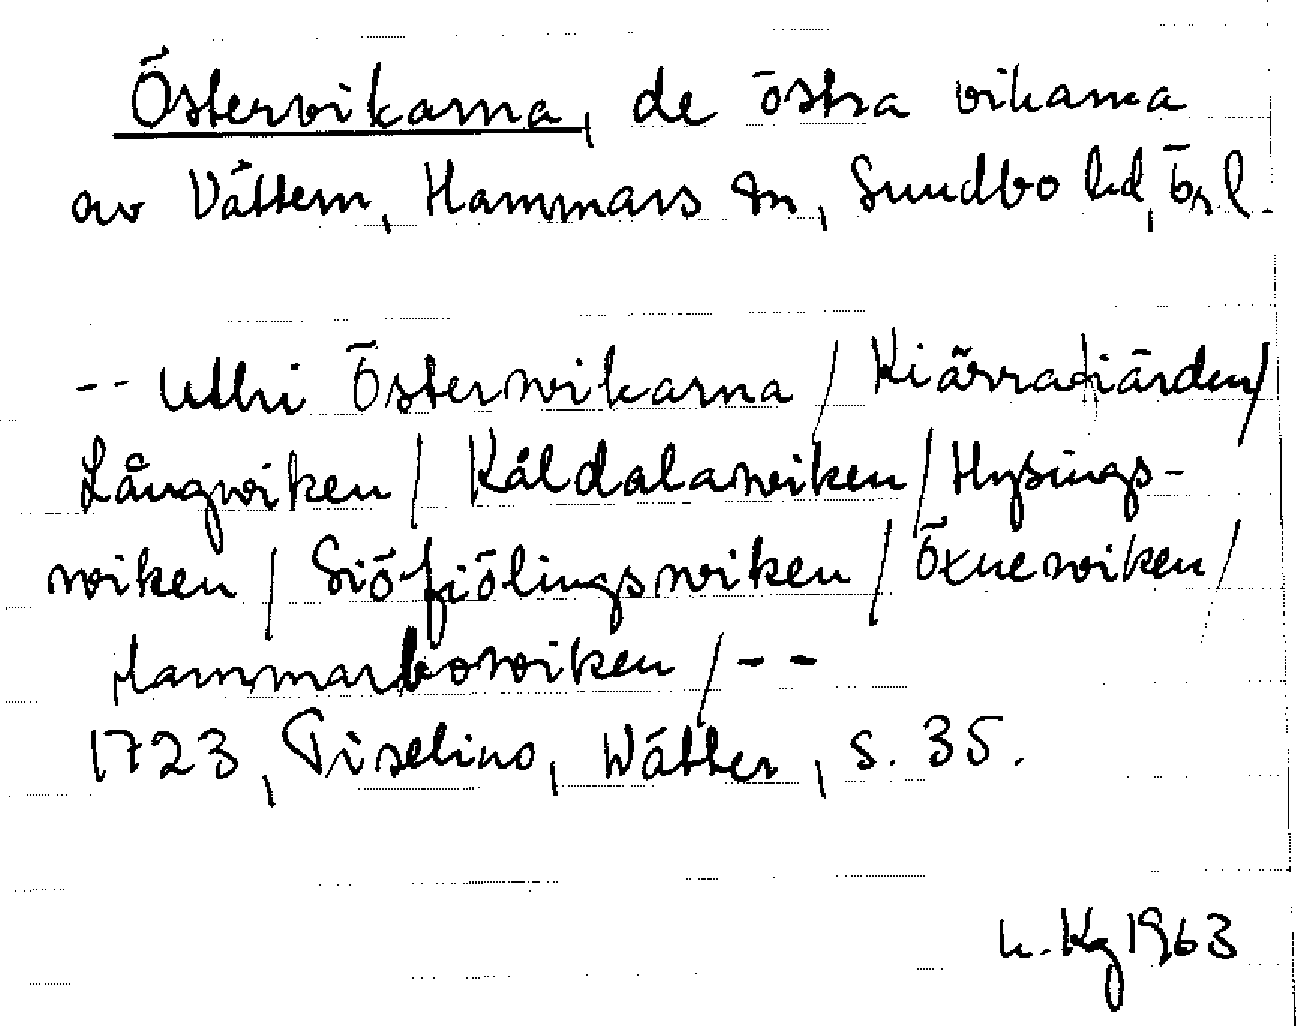 Östervikarna, de östra vikarna
av Vättern, Hammars sn, Sundbo hd, Ögl.
-- Uthi Österwikarna / Kiärrafiärden/
Långwiken / Kåldalawiken / Hysings-
wiken / Siöfiölingswiken / Öxnewiken /
Hammarbowiken / --
1723, Tiselius, Wätter, s. 35.
h. Kg 1963